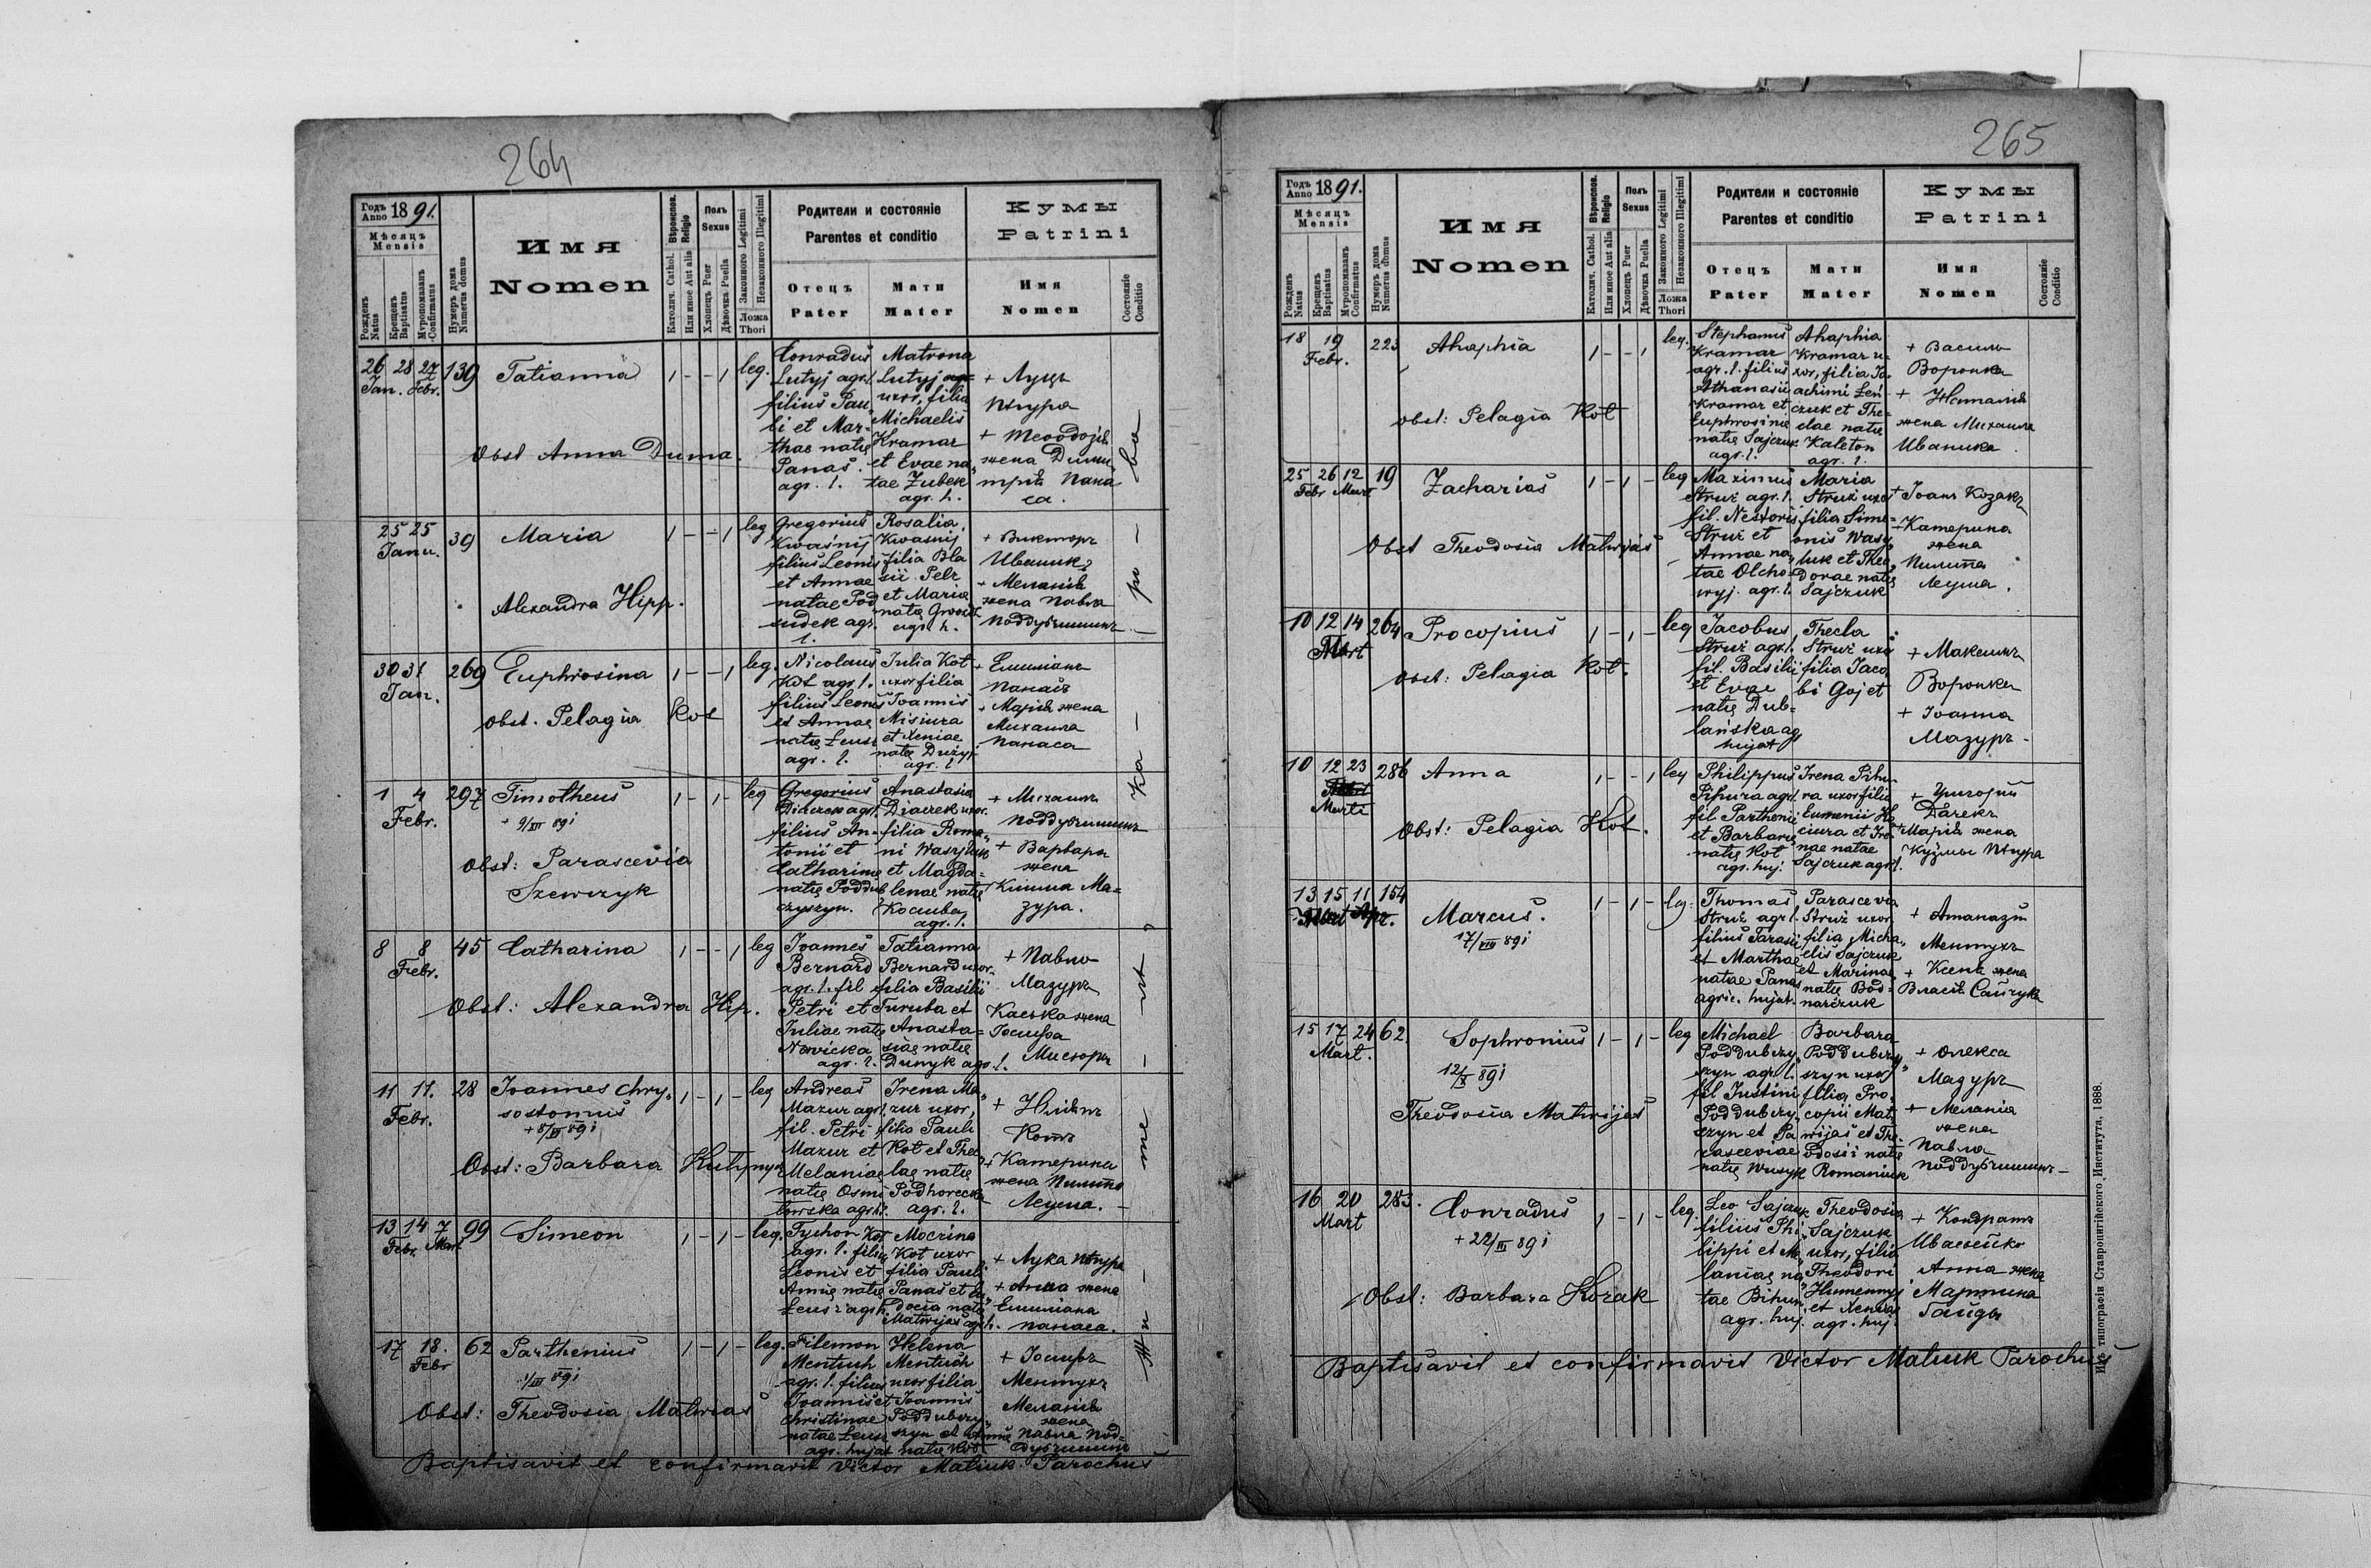 264
Годъ Anno 1891.
Мѣсяцъ Mensis
Рожденъ Natus
Крещенъ Baptisatus
Мѵропомазанъ Confirmatus
Нумеръ дома Numerus domus
Имя
Nomen
Вѣроиспов. Religio
Католич. Cathol.
Или иное Aut alia
Полъ Sexus
Хлопецъ Puer
Дѣвочка Puella
Законного Legitimi
Незаконного Illegitimi
Ложа Thori
Родители и состояніе
Parentes et conditio
Отецъ
Pater
Мати
Mater
Кумы
Patrini
Имя
Nomen
Состояніе
Conditio
26 28 27 139 Tatianna 1 - - 1 leg.
Jan. Febr.
Obst Anna Duma.
Conradus
Lutyj agr. l.
filius Pau
li et Mar=
thae natę
Panas.
agr. l.
Matrona
Lutyj
uxor, filia
Michaelis
Kramar
et Evae na
tae Zubek
agr. h.
+ Луць
Пѣгура
+ Теодозія
жена Дими
трія Пана
са.
25 25 39 Maria 1 - - 1 leg
Janu.
Alexandra Hipp.
Gregorius
Kwaśnij
filius Leonis
et Annae
natae Pod
sudek agr.
l.
Rosalia
Kwasnij
filia Bla
sii Pelz
et Maria
natę
agr. h.
+ Викторъ
Ивашик
+ Меланія
жена Павла
Поддубчишинъ
30 31 269 Euphrosina 1 - - 1 leg.
Jan.
obst. Pelagia Kot
Nicolaus
Kot agr. l.
filius Leonis
et Annae
natę Leus
agr. l.
Julia Kot
uxor filia
Joannis
Misiura
et Xeniae
natę Dużyj
agr. l
+ Емиліанъ
Панасъ
+ Марія жена
Михаила
Панаса
1 4 297 Timotheus 1 - 1 - leg
Febr.
+ 9/VII 891
obst: Parascevia
Szewczyk
Gregorius
Diaczek agr.
filius An-
tonii et
Catharinę
natę Poddub
czyszyn.
Anastasia
Diaczek uxor.
filia Roma
ni Wasyluk
et Magda=
lenae natę
agr. l.
+ Михаилъ
Поддубчишинъ
+ Варвара
жена
Кинна Ма=
зура.
8 8 45 Catharina 1 - - 1 leg
Febr.
Obst: Alexandra Hip.
Joannes
Bernard
agr. l. fil
Petri et
Juliae natę
Nowicka
agr. l.
Tatianna
Bernard uxor.
filia Basilii
Turuba et
Anasta=
siae natę
Dunyk agr. l.
+ Павло
Мазуръ
Каська жена
Іосифа
Мисюръ
11 11. 28 Joannes Chry
Febr.
sostomus
1 - 1 - leg
Obst: Barbara
Andreas
Mazur agr.
fil. Petri
Mazur et
Melaniae
natę Osmi
lowska agr.
Irena Ma
zur uxor,
filia Pauli
Kot et Thec
lae natę
Podhorecka
agr. l.
Котъ
+ Катерина
жена Пилипа
Леуша.
13 14 7 99 Simeon 1 - 1 - leg.
Febr. Mart
Tychon Kot
agr. l. filius
Leonis et
Annę natę
Leus agr. h.
Mocrina
Kot uxor
filia Pauli
Panas et Eu
docia natę
Matwijas agr. h.
+ Лука Пѣгура
+ Анна жена
Емиліана
Панаса.
17 18. 62 Parthenius 1 - 1 - leg.
Febr
1/III 891
Obst: Theodosia Matwias
Filemon
Mentuch
agr. l. filius
Joannis et
Christinae
natae Leus
agr. hujat
Helena
Mentuch
uxor filia
Joannis
Poddubczy
szyn et Annę
natę Kot.
+ Іосифъ
Ментухъ
Меланія
жена
Павла Под=
дубчишинъ
Baptisavit et confirmavit Victor Matiuk Parochus
265
Годъ Anno 1891.
Мѣсяцъ Mensis
Рожденъ Natus
Крещенъ Baptisatus
Мѵропомазанъ Confirmatus
Нумеръ дома Numerus domus
Имя
Nomen
Вѣроиспов. Religio
Католич. Cathol.
Или иное Aut alia
Полъ Sexus
Хлопецъ Puer
Дѣвочка Puella
Законного Legitimi
Незаконного Illegitimi
Ложа Thori
Родители и состояніе
Parentes et conditio
Отецъ
Pater
Мати
Mater
Кумы
Patrini
Имя
Nomen
Состояніе
Conditio
18 19 223 Ahaphia 1 - - 1 leg.
Febr.
obst: Pelagia Kot
Stephanus
Kramar
agr. l. filius
Athanasii
Kramar et
Euphrosinę
natę Sajczuk
agr. l.
Ahaphia
Kramar u=
xor, filia Jo
achimi Leń
czuk et The=
clae natę
Kaleton
agr. l.
+ Василь
Воронка
+ Наталія
жена Михаила
Иваника
25 26 12 19 Zacharias 1 - 1 - leg
Febr Mart
Obst Theodosia Matwijas
Maximus
Struż agr. l.
fil. Nestoris
Struż et
Annae na
tae Olcho=
wyj. agr. l.
Maria
Struż uxor
filia Sime=
onis Wasy
luk et Theo
dorae natę
Sajczuk
+ Іоанъ Козакъ
+ Катерина
жена
Пилипа
Леуша.
10 12 14 264 Procopius 1 - 1 - leg
Mart
obst: Pelagia Kot.
Jacobus
Struż agr. l.
fil. Basilii
et Evae
natę Dub=
lańska ag
hujat
Thecla
Struż uxo
filia Jaco
bi Goj et
+ Максимъ
Воронка
+ Іоанна
Мазуръ -
10 12 23 286 Anna 1 - - 1 leg
Marti
Obst: Pelagia Kot.
Philippus
Pihura agr.
fil. Parthenii
et Barbarę
natę Kot
agr. huj.
Irena Pihu
ra uxor filia
Eumenii Ko
ciura et Ire
nae natae
Sajczuk agr. l.
+ Григорій
Дячекъ
+ Марія жена
Кузмы Пѣгура
13 15 11 154 Marcus. 1 - 1 - leg.
Mart Apr.
17/VIII 891
Thomas
Struż agr. l.
filius Tarasii
et Marthae
natae Panas
agric. hujat.
Parascevia
Struż uxor
filia Micha
elis Sajczuk
et Marinae
natę Bod=
narczuk
+ Атаназій
Ментухъ
+ Ксенія жена
Власія Сайчука
15 17 24 62. Sophronius 1 - 1 - leg
Mart.
12/X 891
Theodosia Matwijas
Michael
Poddubczy
szyn agr. l.
fil Justini
Poddubczy
szyn et Pa
rasceviae
natę Wasyk
Barbara
Poddubczy
szyn uxor
filia Pro
copii Mat
wijas et The
odosii natę
Romaniuk
+ Олекса
Мазуръ
+ Меланія
жена
Павла
Поддубчишинъ -
16 20 283. Conradus 1 - 1 - leg.
Mart
+ 22/III 891
Obst: Barbara Kozak
Leo Sajczuk
filius Phi
lippi et Me
laniae na
tae Bihun
agr. huj.
Theodosia
Sajczuk
uxor, filia
Theodori
Humennyj
et Xeniae
agr. huj
+ Кондратъ
Ивасейко
Анна жена
Мартина
Гайды
Baptisavit et confirmavit Victor Matiuk Parochus
Изъ типографіи Ставропигійского Института. 1888.